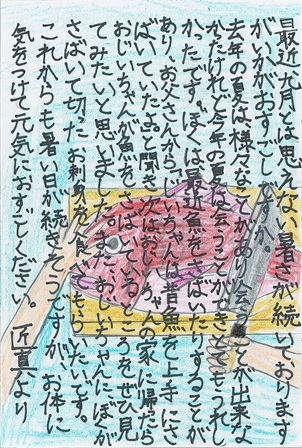 最近九月とは思えない暑さが続いております
がいかがおすごしですか。
去年の夏は、様々なことがあり会うことが出来な
かったけれど今年の夏は会うことができとてもうれし
かったです。ぼくは最近魚をさばいたりすることが
あり、お父さんから「じいちゃんは昔魚を上手にさ
ばいていたよ」と聞き、次はおじいちゃんの家に帰った
おじいちゃんが魚をさばいているところをぜひ見
てみたいと思いました。また、おじいちゃんにぼくが
さばいて切ったお刺身を食べてもらいたいです。
これからも暑い日が続きそうですが、お体に
気をつけて元気におすごしください。 匠真より